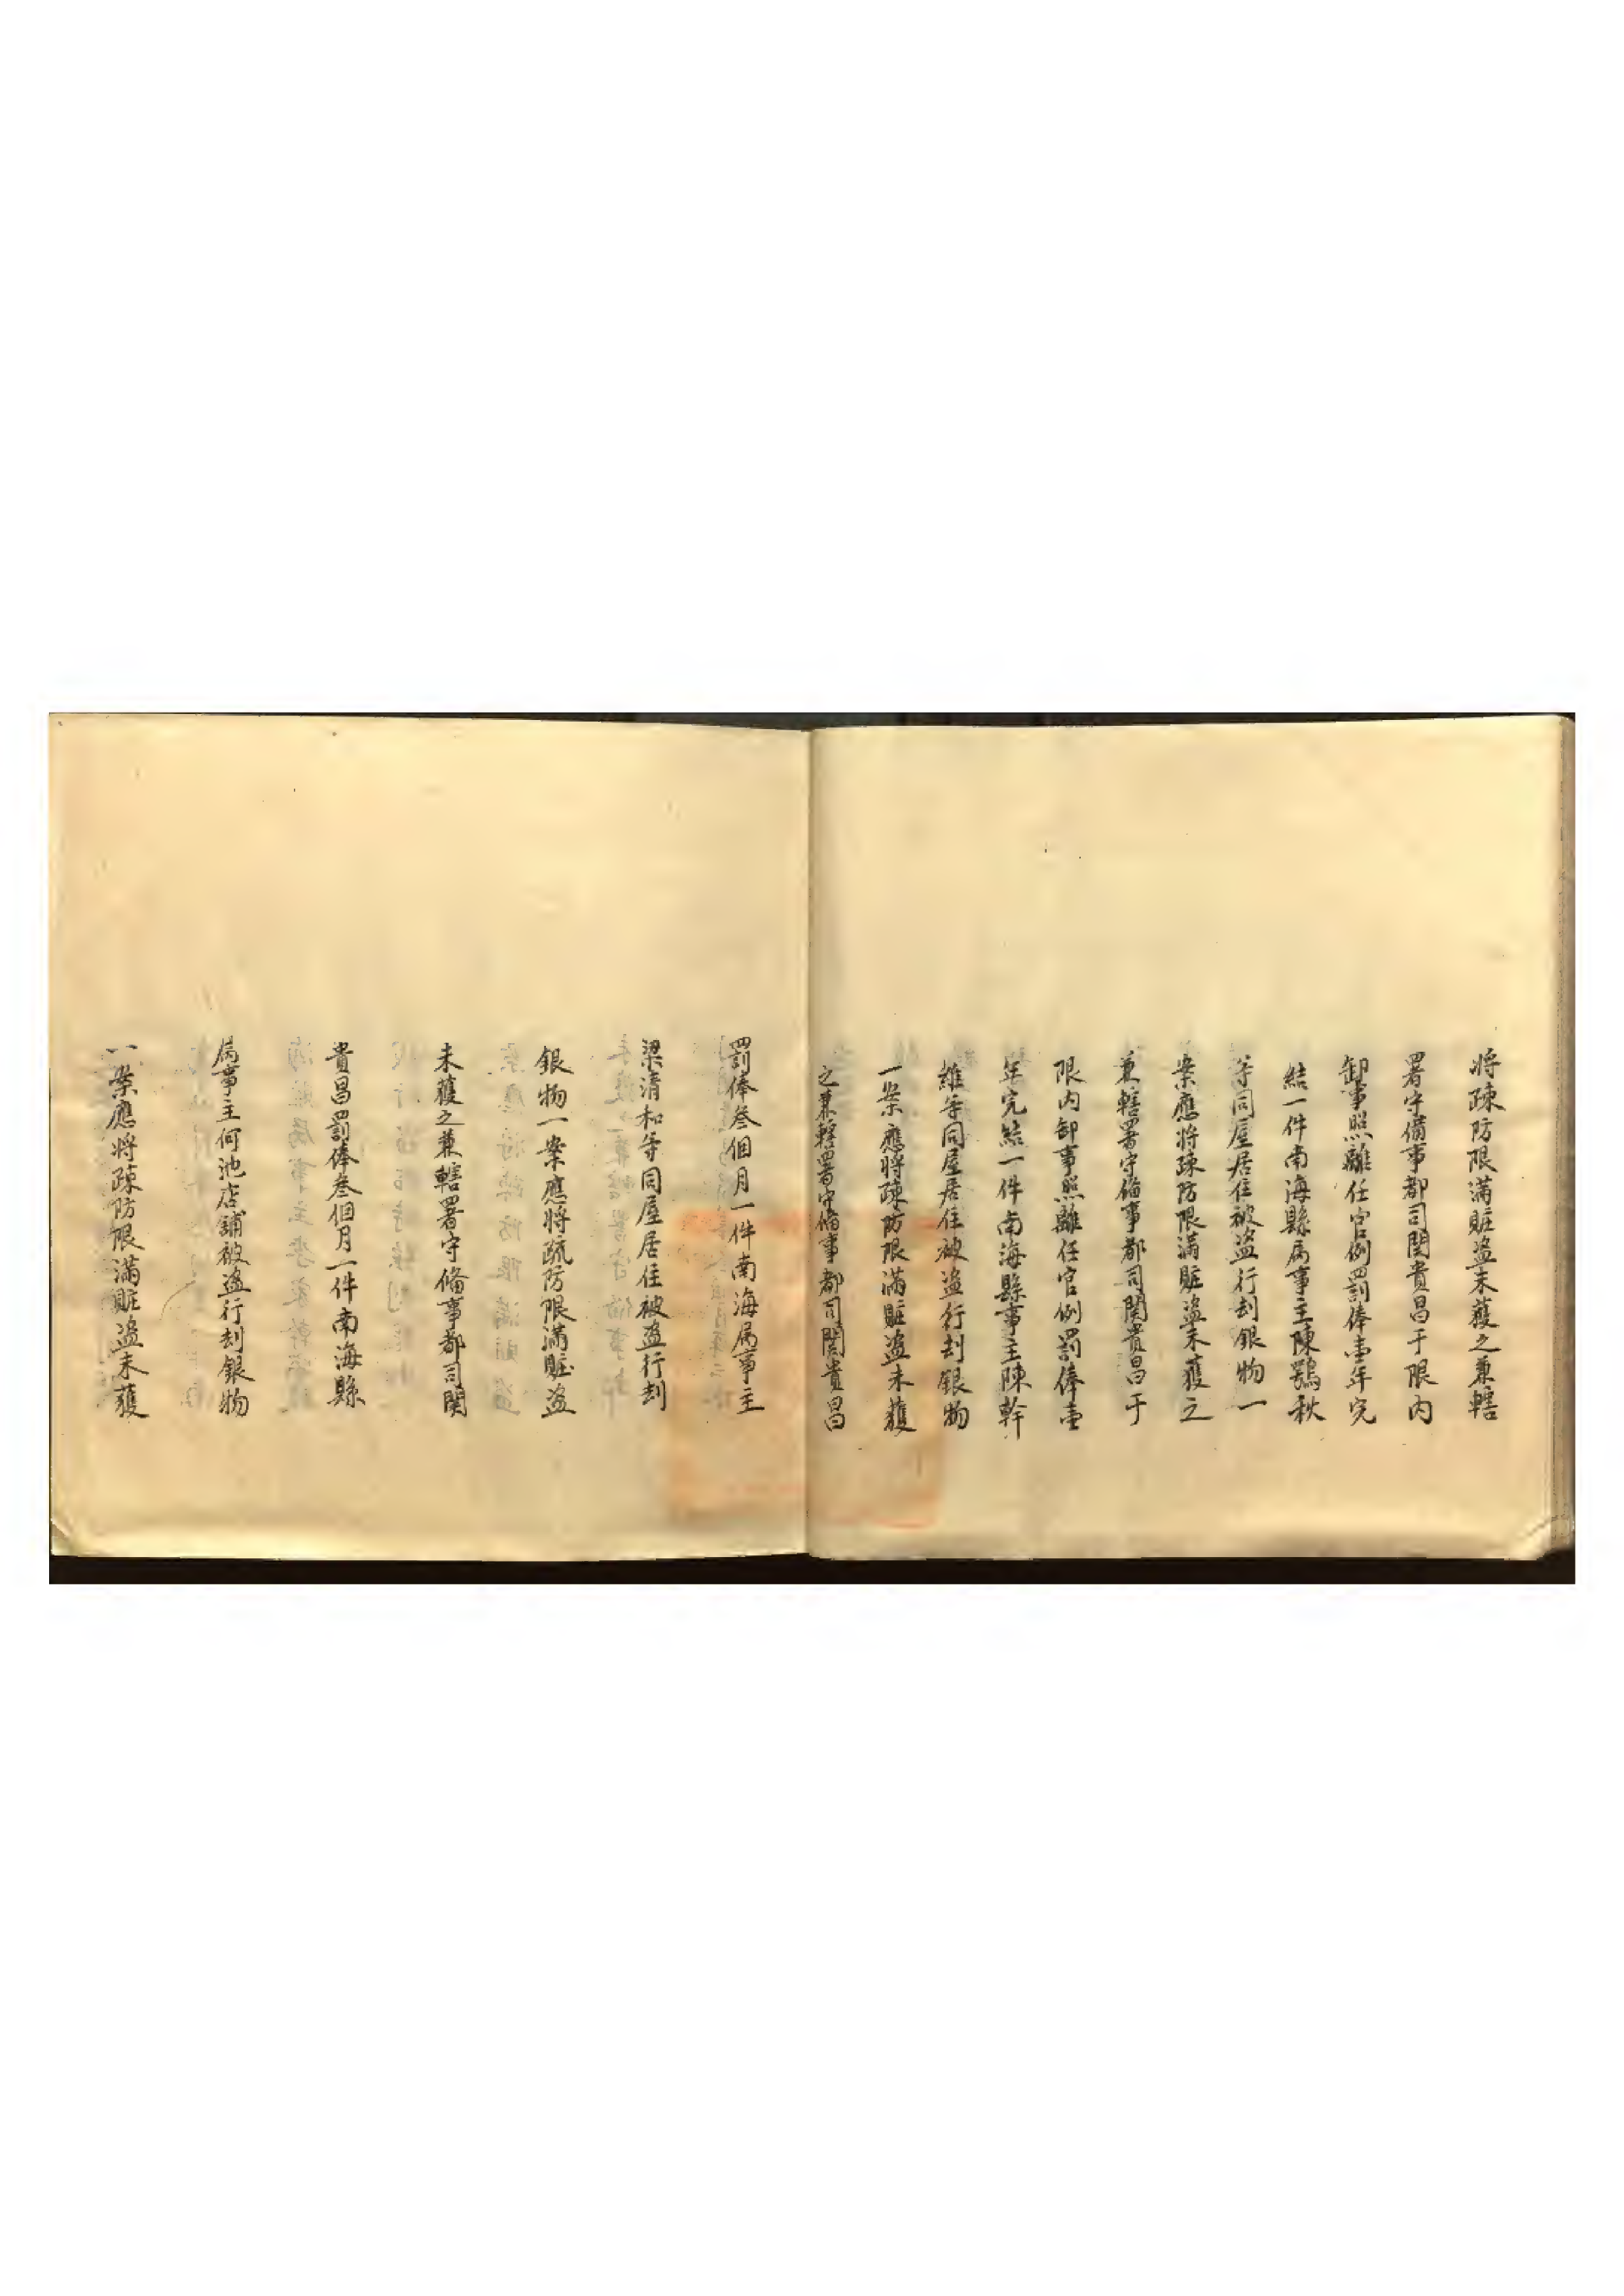 將疎防限滿賍盜未獲之兼轄
署守備事都司関貴昌于限内
卸事照離任官例罰俸壹年完
結一件南海縣属事主陳鶚秋
等同屋居住被盜行刦銀物一
案應將疎防限滿賍盜未獲之
兼轄署守備事都司関貴昌于
限内卸事照離任官例罰俸壹
年完結一件南海縣事主陳幹
維等同屋居住被盜行刦銀物
一案應將疎防限滿賍盜未獲
之兼轄署守備事都司関貴昌
罰俸叄個月一件南海属事主
梁清和等同屋居住被盜行刦
銀物一案應將疏防限滿賍盜
未獲之兼轄署守備事都司関
貴昌罰俸叄個月一件南海縣
属事主何池店舖被盜行刦銀物
一案應將疎防限滿賍盜未獲